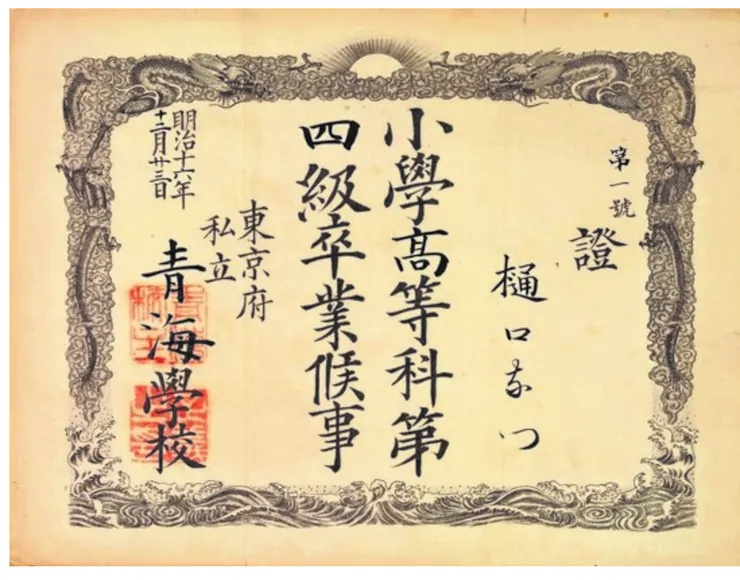 第一號
證
樋口なつ
小學高等科第
四級卒業候事
東京府
私立
青海學校
明治十六年
十二月廿三日